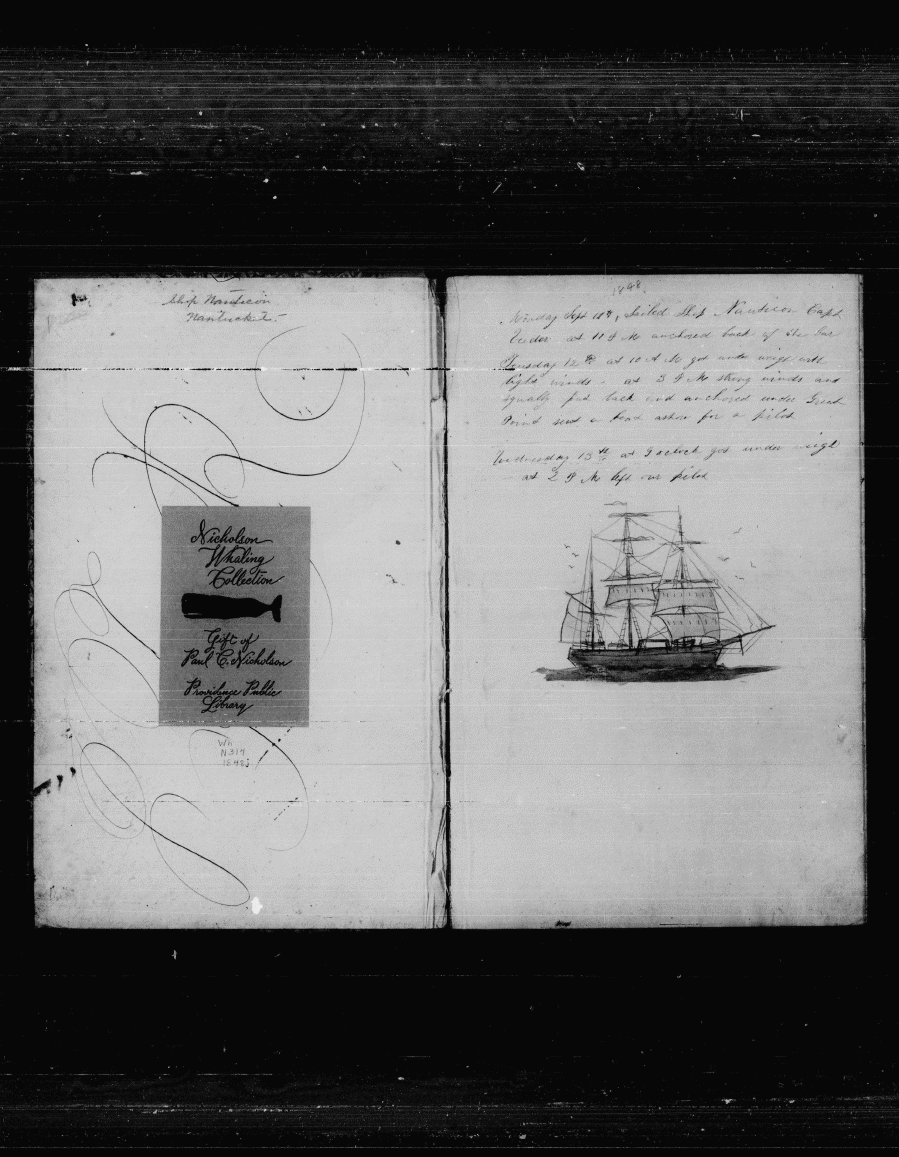 Ship Nauticon
Nantucket.
Nicholson
Whaling
Collection
Gift of
Paul C. Nicholson
Providence Public
Library
Wh
N317
1848j
1848
Monday Sept 18th, Sailed Ship Nauticon Capt
at 11 P M anchored back of the Bar
12th at 10 A M got under weigh with
light winds. at 3 P M strong winds and
squally put back and anchored under Great
Point sent a boat ashore for a pilot
Wednesday 13th at 9 oclock got under weigh
at 2 P M left our pilot